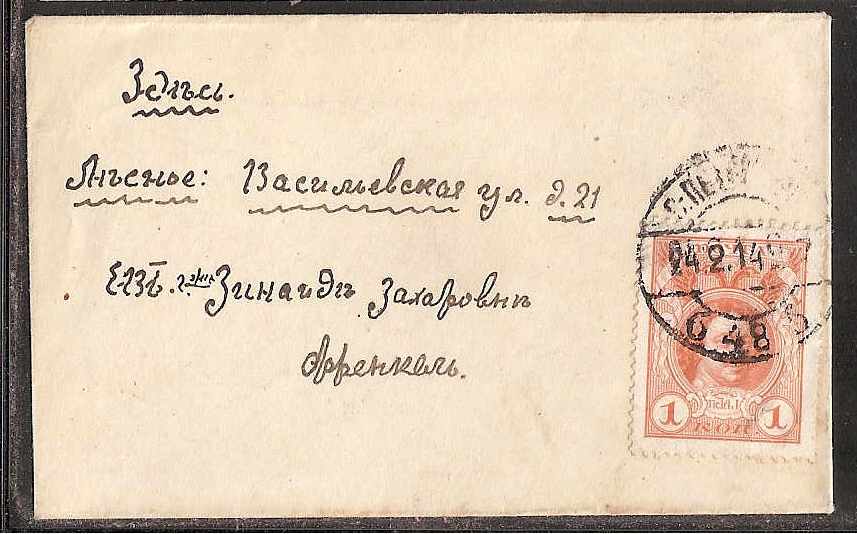 Здѣсь.
Лѣсное: Васильевская ул. д. 21
ЕВБ. г-жѣ Зинаидѣ Захаровнѣ
Френкель.
С-ПЕТ
24.2.14
6 48
Петръ I
1 1
КОП.